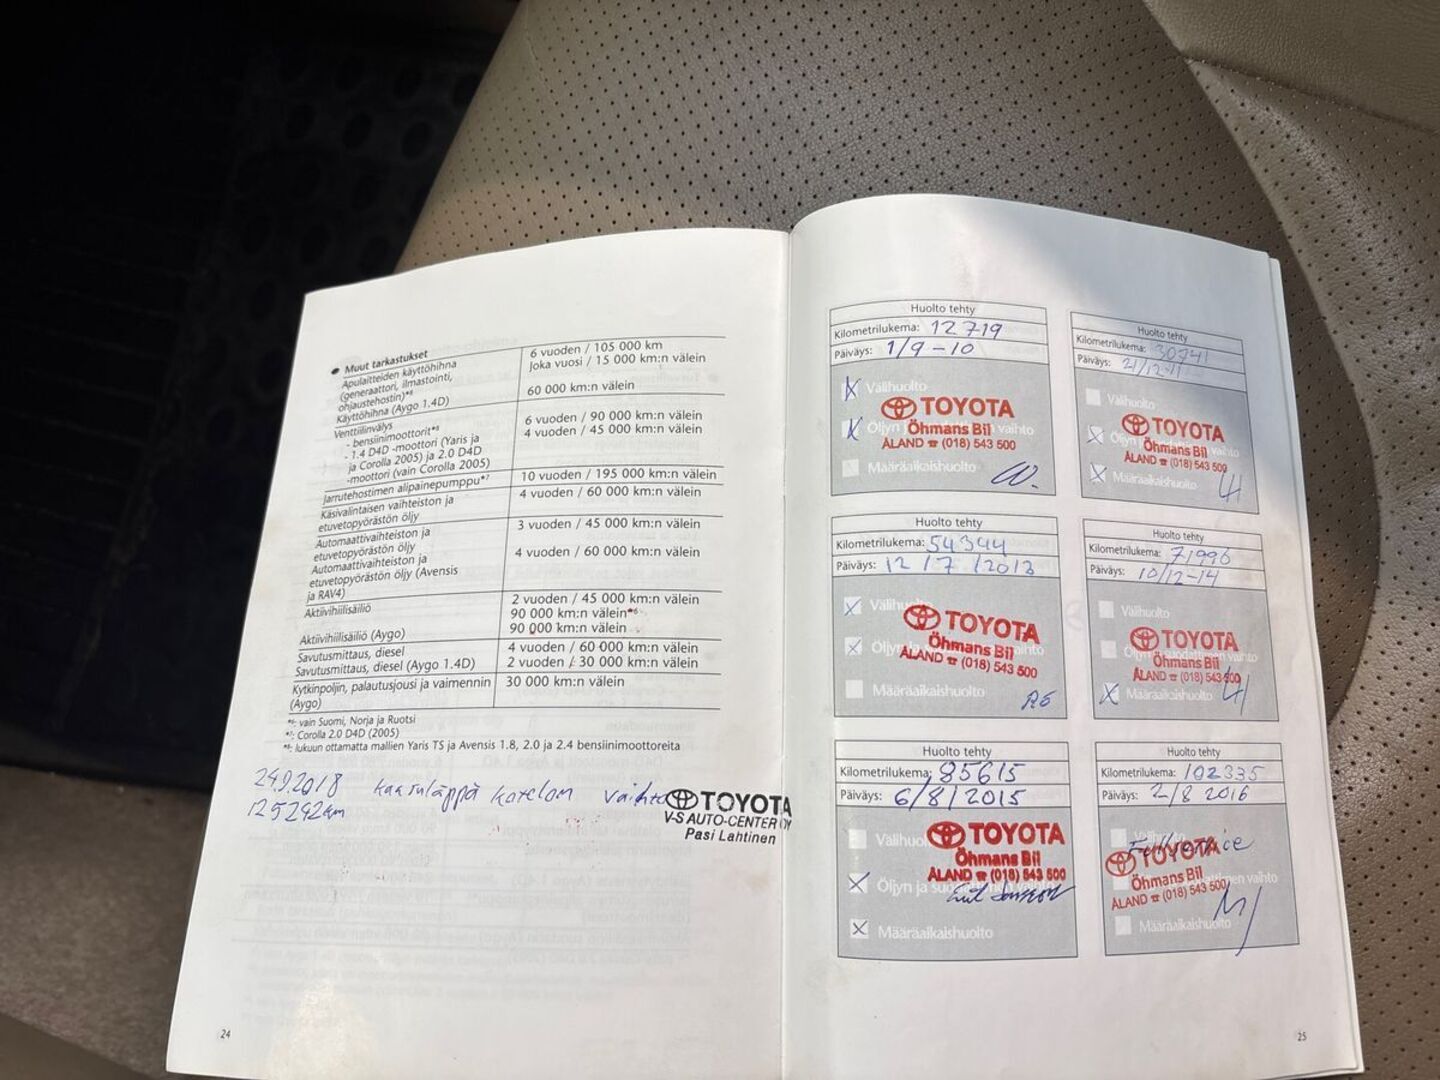 Muut tarkastukset
Apulaitteiden käyttöhihna
(generaattori, ilmastointi,
ohjaustehostin)*⁸
6 vuoden / 105 000 km
Joka vuosi / 15 000 km:n välein
Käyttöhihna (Aygo 1.4D)
60 000 km:n välein
Venttiilinvälys
- bensiinimoottorit*⁸
- 1.4 D4D -moottori (Yaris ja
ja Corolla 2005) ja 2.0 D4D
-moottori (vain Corolla 2005)
6 vuoden / 90 000 km:n välein
4 vuoden / 45 000 km:n välein
Jarrutehostimen alipainepumppu*⁷
10 vuoden / 195 000 km:n välein
Käsivalintaisen vaihteiston ja
etuvetopyörästön öljy
4 vuoden / 60 000 km:n välein
Automaattivaihteiston ja
etuvetopyörästön öljy
3 vuoden / 45 000 km:n välein
Automaattivaihteiston ja
etuvetopyörästön öljy (Avensis
ja RAV4)
4 vuoden / 60 000 km:n välein
Aktiivihiilisäiliö
2 vuoden / 45 000 km:n välein
90 000 km:n välein*⁶
Aktiivihiilisäiliö (Aygo)
90 000 km:n välein
Savutusmittaus, diesel
4 vuoden / 60 000 km:n välein
Savutusmittaus, diesel (Aygo 1.4D)
2 vuoden / 30 000 km:n välein
Kytkinpoljin, palautusjousi ja vaimennin
(Aygo)
30 000 km:n välein
*⁶: vain Suomi, Norja ja Ruotsi
*⁷: Corolla 2.0 D4D (2005)
*⁸: lukuun ottamatta mallien Yaris TS ja Avensis 1.8, 2.0 ja 2.4 bensiinimoottoreita
24.9.2018 kaasuläppä kotelon vaihto
125242km
TOYOTA
V-S AUTO-CENTER OY
Pasi Lahtinen
24
Huolto tehty
Kilometrilukema: 12719
Päiväys: 1/9-10
Välihuolto
TOYOTA
Öhmans Bil
ÅLAND ☎ (018) 543 500
Määräaikaishuolto
Huolto tehty
Kilometrilukema: 30741
Päiväys: 21/12-11
Välihuolto
TOYOTA
Öhmans Bil
ÅLAND ☎ (018) 543 500
Määräaikaishuolto
Huolto tehty
Kilometrilukema: 54344
Päiväys: 12/7/2013
Välihuolto
TOYOTA
Öhmans Bil
ÅLAND ☎ (018) 543 500
Määräaikaishuolto
Huolto tehty
Kilometrilukema: 71996
Päiväys: 10/12-14
Välihuolto
TOYOTA
Öhmans Bil
ÅLAND ☎ (018) 543 500
Määräaikaishuolto
Huolto tehty
Kilometrilukema: 85615
Päiväys: 6/8/2015
Välihuolto
TOYOTA
Öhmans Bil
ÅLAND ☎ (018) 543 500
Öljyn ja suodattimen vaihto
Määräaikaishuolto
Huolto tehty
Kilometrilukema: 102335
Päiväys: 2/8 2016
Fullservice
TOYOTA
Öhmans Bil
ÅLAND ☎ (018) 543 500
Määräaikaishuolto
25